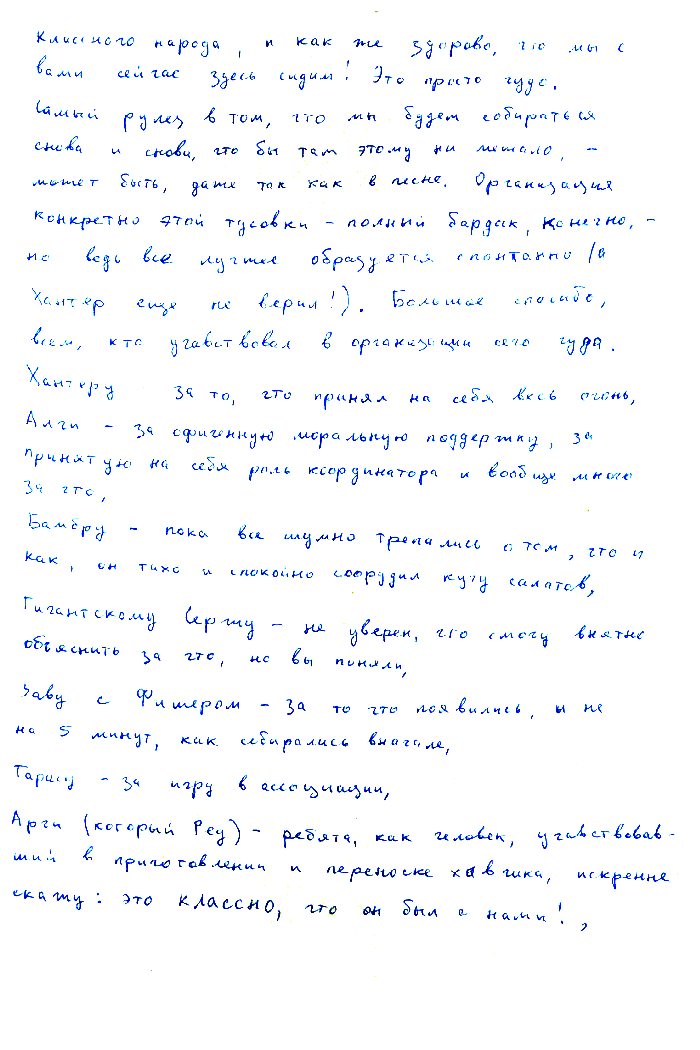 классного народа, и как же здорово, что мы с
вами сейчас здесь сидим! Это просто чудо.
Самый рулез в том, что мы будем собираться
снова и снова, что бы там этому ни мешало, -
может быть, даже так как в песне. Организация
конкретно этой тусовки - полный бардак, конечно, -
но ведь все лучшее образуется спонтанно (а
Хантер еще не верил!). Большое спасибо,
всем, кто учавствовал в организации сего чуда.
Хантеру за то, что принял на себя весь огонь,
Алги - за офигенную моральную поддержку, за
принятую на себя роль координатора и вообще много
за что,
Бамбру - пока все шумно трепались о том, что и
как, он тихо и спокойно соорудил кучу салатов,
Гигантскому Сержу - не уверен, что смогу внятно
объяснить за что, но вы поняли,
Заву с Фишером - за то что появились, и не
на 5 минут, как собирались вначале,
Тарасу - за игру в ассоциации,
Арги (который Реу) - ребята, как человек, учавствовав-
ший в приготовлении и переноске хавчика, искренне
скажу: это классно, что он был с нами!,